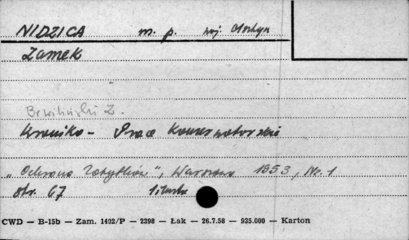 NIDZICA m. p. woj. Olsztyn
Zamek
Brwiliński Z.
Kronika - Prace Konserwatorskie
„Ochrona Zabytków", Warszawa 1953, No. 1
str. 67 1 ilustr.
CWD — B-15b — Zam. 1492/P — 2398 — Łak — 26.7.58 — 935.000 — Karton